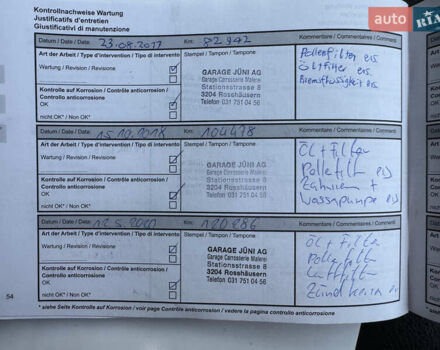 Kontrollnachweise Wartung
Justificatifs d'entretien
Giustificativi di manutenzione
auto RIA
Datum / Date / Data: 23.08.2017 Km: 82942 Kommentare / Commentaires / Commenti
Art der Arbeit / Type d'intervention / Tipo di intervento Stempel / Tampon / Timbro
Wartung / Revision / Revisione
Kontrolle auf Korrosion / Contrôle anticorrosion /
Controllo anticorrosione
OK
nicht OK* / Non OK*
GARAGE JÜNI AG
Garage Carrosserie Malerei
Stationsstrasse 8
3204 Rosshäusern
Telefon 031 751 04 56
Pollenfilter ers.
Ölfilter ers.
Bremsflüssigkeit ers.
Datum / Date / Data: 15.10.2018 Km: 104478 Kommentare / Commentaires / Commenti
Art der Arbeit / Type d'intervention / Tipo di intervento Stempel / Tampon / Timbro
Wartung / Revision / Revisione
Kontrolle auf Korrosion / Contrôle anticorrosion /
Controllo anticorrosione
OK
nicht OK* / Non OK*
GARAGE JÜNI AG
Garage Carrosserie Malerei
Stationsstrasse 8
3204 Rosshäusern
Telefon 031 751 04 56
Öl + Filter
Zahnriem +
Wasserpumpe
Datum / Date / Data: Km:
Art der Arbeit / Type d'intervention / Tipo di intervento Stempel / Tampon / Timbro
Wartung / Revision / Revisione
Kontrolle auf Korrosion / Contrôle anticorrosion /
Controllo anticorrosione
OK
nicht OK* / Non OK*
GARAGE JÜNI AG
Garage Carrosserie Malerei
Stationsstrasse 8
3204 Rosshäusern
Telefon 031 751 04 56
Öl + Filter
54
* siehe Seite Kontrolle auf Korrosion / voir page Contrôle anticorrosion / vedere la pagina controllo anticorrosione